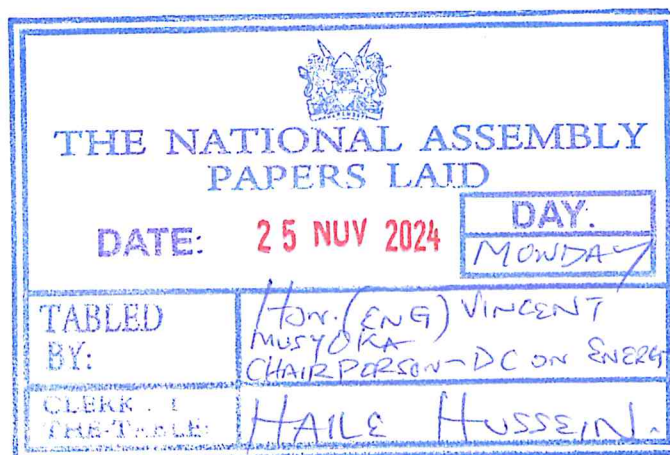 THE NATIONAL ASSEMBLY
PAPERS LAID
DATE: 25 NOV 2024
DAY:
MONDAY
TABLED
BY:
Hon. (ENG) VINCENT
MUSYOKA
CHAIRPERSON - DC ON ENERG
CLERK
THE-TABLE:
HAILE HUSSEIN.